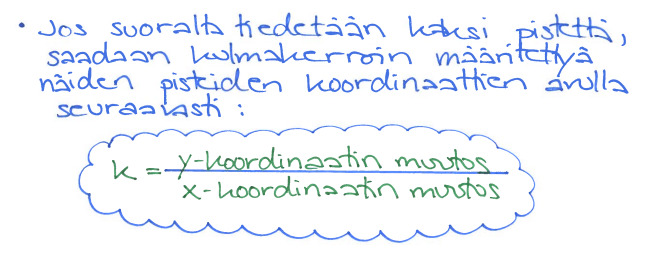 • Jos suoralta tiedetään kaksi pistettä,
saadaan kulmakerroin määritettyä
näiden pisteiden koordinaattien avulla
seuraavasti :
k = y-koordinaatin muutos
x-koordinaatin muutos